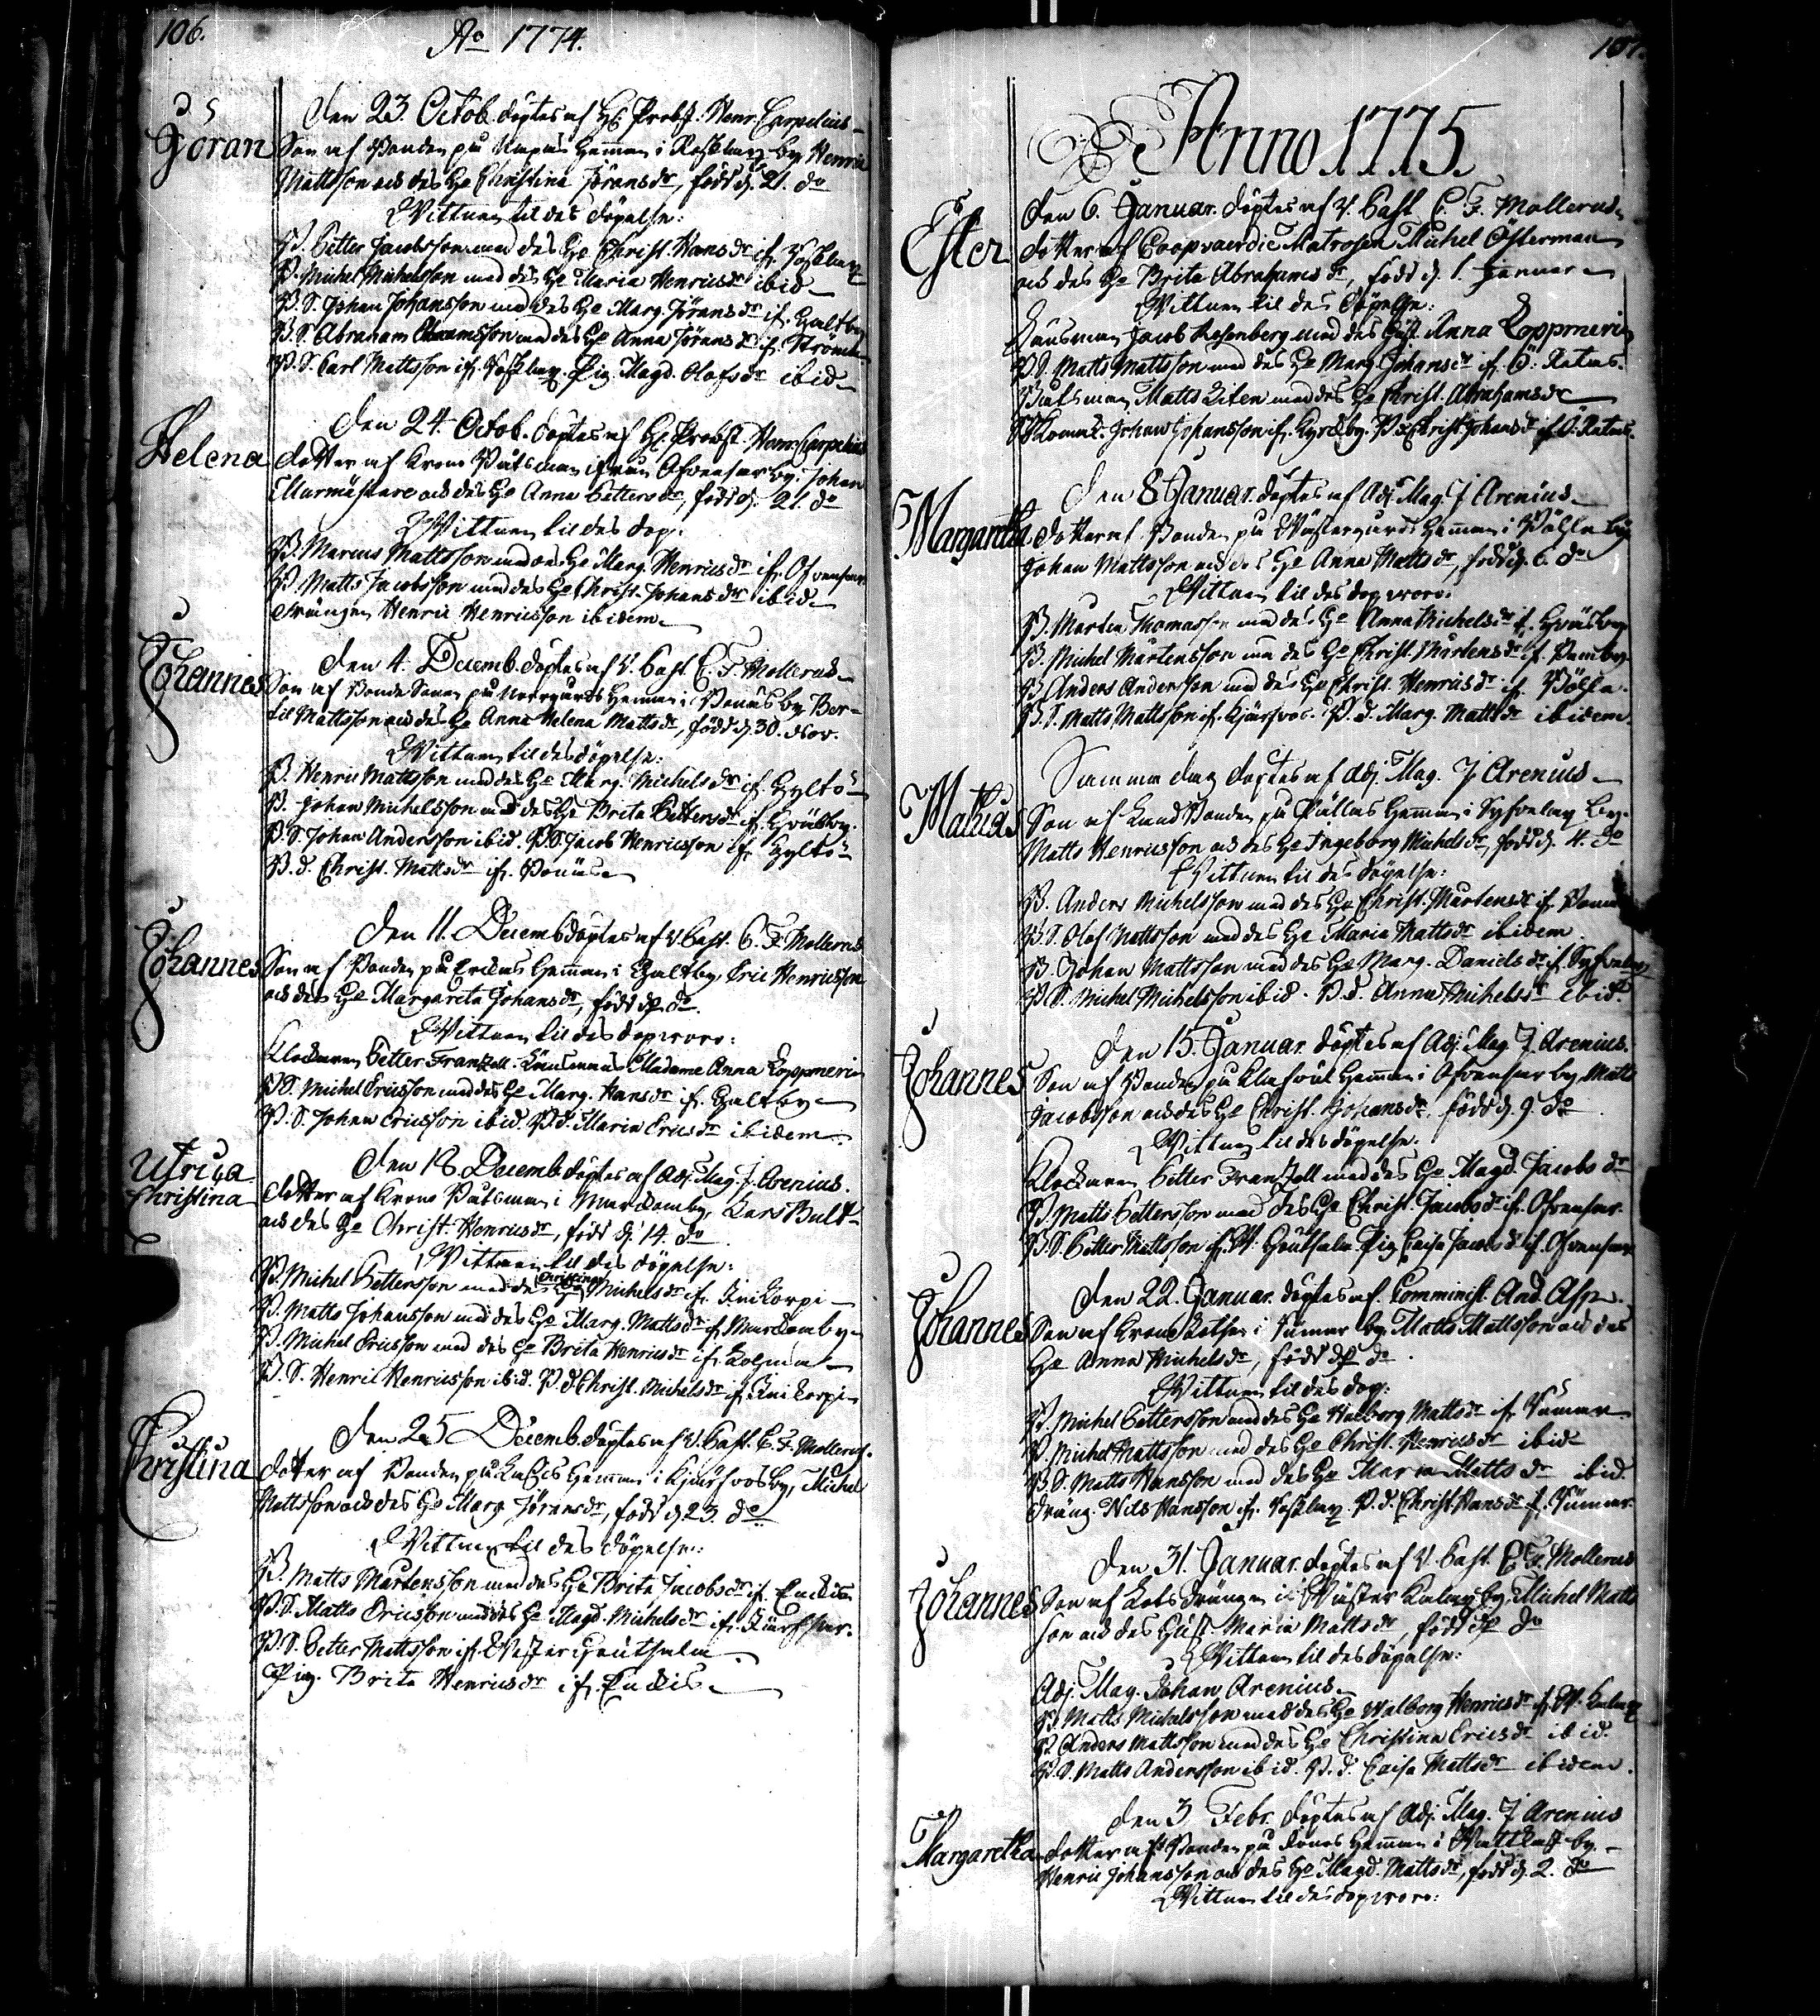 106.
Ao 1774.
Göran
Den 23. Octob. döptes af H. Probst. Henr. Carpelius
Son af Bonden på Hemman i by Henric
Mattsson och des H:o Christina Jöransdr, född d. 21. do
Wittnen til des döpelse:
B. Petter Jacobsson med des H:o Christ. Hansdr ifr.
B. Michel Michelsson med des H:o Maria Henricsdr ibid
B.S. Johan Johansson med des H:o Marg. Jöransdr ifr. Galtby
B.S. Abraham Abramsson med des H:o Anna Jöransdr ifr. Strömm
B.S. Carl Mattsson ifr. Pig. Magd. Olofsdr ibid
Helena
Den 24. Octob. döptes af H. Probst. Henr. Carpelius
dotter af Krono Båtsman ifrån Ofvensar by. Johan
Murmästare och des H:o Anna Pettersdr, född d. 21. do
Wittnen til des dop:
B. Marcus Mattsson med des H:o Marg. Henricsdr ifr. Ofvensar
B. Matts Jacobsson med des H:o Christ. Johansdr ibid
Drängen Henric Henricsson ibidem
Johannes
Den 4. Decemb. döptes af V. Past. C. F. Mollerus
Son af Bonde Sonen på Norrgårds Hemman i by Ber-
til Mattsson och des H:o Anna Helena Mattsdr, född d. 30. Nov.
Wittnen til des döpelse:
B. Henric Mattsson med des H:o Marg. Michelsdr ifr. Hyltö
B. Johan Michelsson med des H:o Brita Pettersdr ifr. Gräsby.
B.S. Johan Andersson ibid. B.S. Jacob Henricsson ifr. Hyltö
B.d. Christ. Mattsdr ifr.
Johannes
Den 11. Decemb döptes af V. Past. C. F. Mollerus
Son af Bonden på Erickas Hemman i Galtby Eric Henricsson
och des H:o Margareta Johansdr, född do.
Wittnen til des dop woro:
Klockaren Petter Frantzell. Madame Anna Koppmeria
B.S. Michel Ericsson med des H:o Marg. Hansdr ifr. Galtby
B.S. Johan Ericsson ibid. B.d. Maria Ericsdr ibidem.
Ulrica
Christina
Den 18. Decemb. döptes af Adj. Mag. J. Arenius.
dotter af Krono Båtsman i Murckomby, Lars Bult
och des H:o Christ. Henricsdr, född d. 14. do
Wittnen til des döpelse:
B. Michel Pettersson med des H:o Christina Michelsdr ifr. Knikorpi
B. Matts Johansson med des H:o Marg. Mattsdr ifr. Murckomby
B. Michel Ericsson med des H:o Brita Henricsdr ifr.
B.S. Henric Henricsson ibid. B.d. Christ. Michelsdr ifr. Knikorpi
Christina
Den 25 Decemb. döptes af V. Past. C. F. Mollerus.
dotter af Bonden på Hemman i by, Michel
Mattsson och des H:o Marg. Jöransdr, född d. 23. do
Wittnen til des döpelse:
B. Matts Mårtensson med des H:o Brita Jacobsdr ifr. Enckis
B.S. Matts Ericsson med des H:o Magd. Michelsdr ifr.
B.S. Petter Mattsson ifr. Wester
Pig. Brita Henricsdr ifr. Enckis
107.
Anno 1775.
Ester
Den 6. Januar. döptes af V. Past. C. F. Mollerus
dotter af Coopvaerdie Matrosen Michel Österman
och des H:o Brita Abrahamsdr, född d. 1. Januar
Wittnen til des döpelse:
Länsman Jacob Rosenberg med des Hust. Anna Koppmeria
B.S. Matts Mattsson med des H:o Marg. Johansdr ifr. Ö. Retais.
Båtsman Matts Liten med des H:o Christ. Abrahamsdr
Johan Johansson ifr. Kyrckby. B.d. Christ. Johansdr ifr. Ö. Retais.
Margaretha
Den 8 Januar. döptes af Adj. Mag. J. Arenius
dotter af Bonden på Wästergårds Hemman i by
Johan Mattsson och des H:o Anna Mattsdr, född d. 6. do
Wittnen til des dop woro.
B. Mårten Thomasson med des H:o Anna Michelsdr ifr. Gräsby
B. Michel Mårtensson med des H:o Christ. Mårtensdr ifr.
B. Anders Andersson med des H:o Christ. Henricsdr ifr.
B.S. Matts Mattsson ifr. B.d. Marg. Mattsdr ibidem.
Mathias
Samma dag döptes af Adj. Mag. J. Arenius
Son af Land Bonden på Hemman i Syfvelax by.
Matts Henricsson och des H:o Ingeborg Michelsdr, född d. 4. do
Wittnen til des döpelse:
B. Anders Michelsson med des H:o Christ. Mårtensdr ifr.
B.S. Olof Mattsson med des H:o Maria Mattsdr ibidem
B. Johan Mattsson med des H:o Marg. Danielsdr ifr. Syfvelax
B.S. Michel Michelsson ibid. B.d. Anna Michelsdr ibid.
Johannes
Den 15. Januar. döptes af Adj. Mag. J. Arenius.
Son af Bonden på Hemman i Ofvensar by Matts
Jacobsson och des H:o Christ. Johansdr född d. 9. do
Wittnen til des döpelse:
Klockaren Petter Frantzell med des H:o Magd. Jacobsdr
B. Matts Pettersson med des H:o Christ. Jacobsdr ifr. Ofvensar.
B.S. Petter Mattsson ifr. W. Pig. Caisa Jacobsdr ifr. Ofvensar
Johannes
Den 22. Januar. döptes af Comminist. And. Asp.
Son af Krono i by Matts Mattsson och des
H:o Anna Michelsdr, född do.
Wittnen til des dop:
B. Michel Pettersson med des H:o Walborg Mattsdr ifr.
B. Michel Mattsson med des H:o Christ. Henricsdr ibid
B.S. Matts Hansson med des H:o Maria Mattsdr ibid.
Dräng. Nils Hansson ifr. B.d. Christ. Hansdr ifr.
Johannes
Den 31. Januar. döptes af V. Past. C. F. Mollerus
Son af Drängen i Wäster by, Michel Matts
son och des Hust. Maria Mattsdr, född do
Wittnen til des döpelse:
Adj. Mag. Johan Arenius
B. Matts Michelsson med des H:o Walborg Henricsdr ifr. W.
B. Anders Mattsson med des H:o Christina Ericsdr ibid.
B.S. Matts Andersson ibid. B.d. Caisa Mattsdr ibidem.
Margaretha
Den 3 Febr. döptes af Adj. Mag. J. Arenius
dotter af Bonden på Hemman i by
Henric Johansson och des H:o Magd. Mattsdr, född d. 2. do
Wittnen til des dop woro: